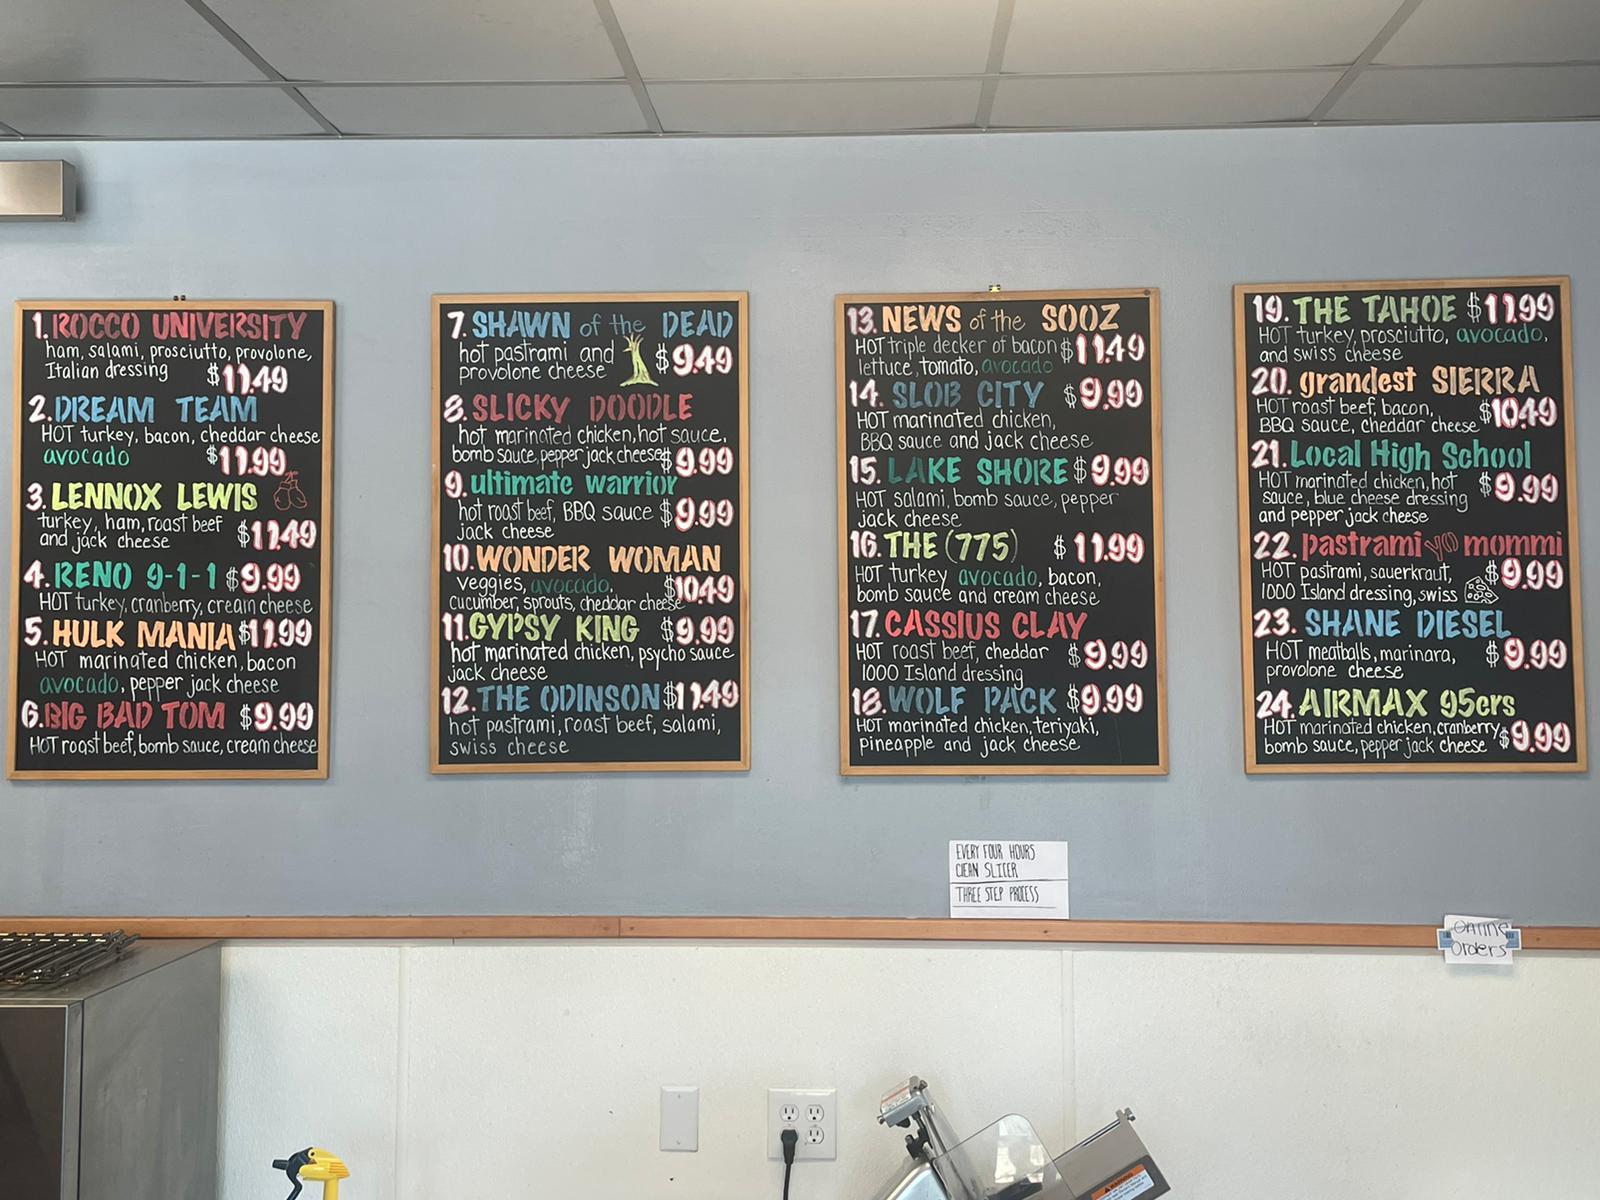 1. ROCCO UNIVERSITY
ham, salami, prosciutto, provolone,
Italian dressing $11.49
2. DREAM TEAM
HOT turkey, bacon, cheddar cheese
avocado $11.99
3. LENNOX LEWIS
turkey, ham, roast beef
and jack cheese $11.49
4. RENO 9-1-1 $9.99
HOT turkey, cranberry, cream cheese
5. HULK MANIA $11.99
HOT marinated chicken, bacon
avocado, pepper jack cheese
6. BIG BAD TOM $9.99
HOT roast beef, bomb sauce, cream cheese
7. SHAWN of the DEAD
hot pastrami and
provolone cheese $9.49
8. SLICKY DOODLE
hot marinated chicken, hot sauce,
bomb sauce, pepper jack cheese $9.99
9. ultimate warrior
hot roast beef, BBQ sauce $9.99
jack cheese
10. WONDER WOMAN
veggies, avocado, $10.49
cucumber, sprouts, cheddar cheese
11. GYPSY KING $9.99
hot marinated chicken, psycho sauce
jack cheese
12. THE ODINSON $11.49
hot pastrami, roast beef, salami,
swiss cheese
13. NEWS of the SOOZ
HOT triple decker of bacon $11.49
lettuce, tomato, avocado
14. SLOB CITY $9.99
HOT marinated chicken,
BBQ sauce and jack cheese
15. LAKE SHORE $9.99
HOT salami, bomb sauce, pepper
jack cheese
16. THE (775) $11.99
HOT turkey avocado, bacon,
bomb sauce and cream cheese
17. CASSIUS CLAY
HOT roast beef, cheddar $9.99
1000 Island dressing
18. WOLF PACK $9.99
HOT marinated chicken, teriyaki,
pineapple and jack cheese
19. THE TAHOE $11.99
HOT turkey, prosciutto, avocado,
and swiss cheese
20. grandest SIERRA
HOT roast beef, bacon, $10.49
BBQ sauce, cheddar cheese
21. Local High School
HOT marinated chicken, hot
sauce, blue cheese dressing $9.99
and pepper jack cheese
22. pastrami yo mommi
HOT pastrami, sauerkraut, $9.99
1000 Island dressing, swiss
23. SHANE DIESEL
HOT meatballs, marinara, $9.99
provolone cheese
24. AIRMAX 95ers
HOT marinated chicken, cranberry,
bomb sauce, pepper jack cheese $9.99
EVERY FOUR HOURS
CLEAN SLICER
THREE STEP PROCESS
Online
Orders
WARNING